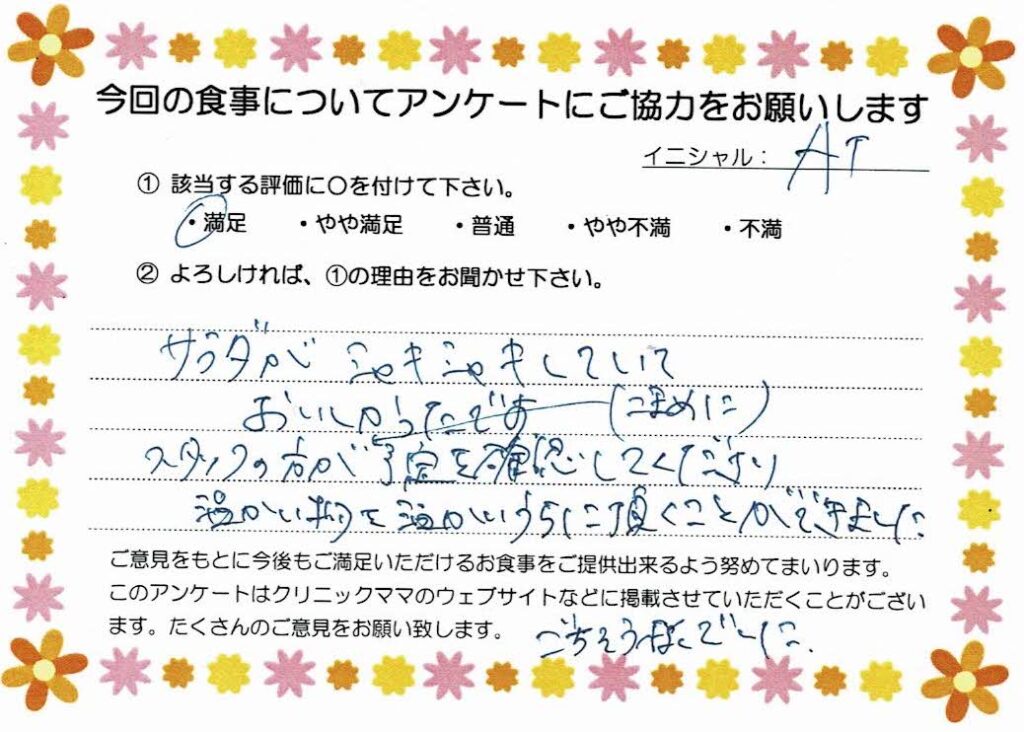 今回の食事についてアンケートにご協力をお願いします
イニシャル： AT
① 該当する評価に〇を付けて下さい。
・満足 ・やや満足 ・普通 ・やや不満 ・不満
② よろしければ、①の理由をお聞かせ下さい。
サラダが シャキシャキしていて
おいしかったです (こまめに)
スタッフの方が予定を確認してくださり
温かい物を温かいうちに頂くことができました
ご意見をもとに今後もご満足いただけるお食事をご提供出来るよう努めてまいります。
このアンケートはクリニックママのウェブサイトなどに掲載させていただくことがござい
ます。たくさんのご意見をお願い致します。
ごちそうさまでした。